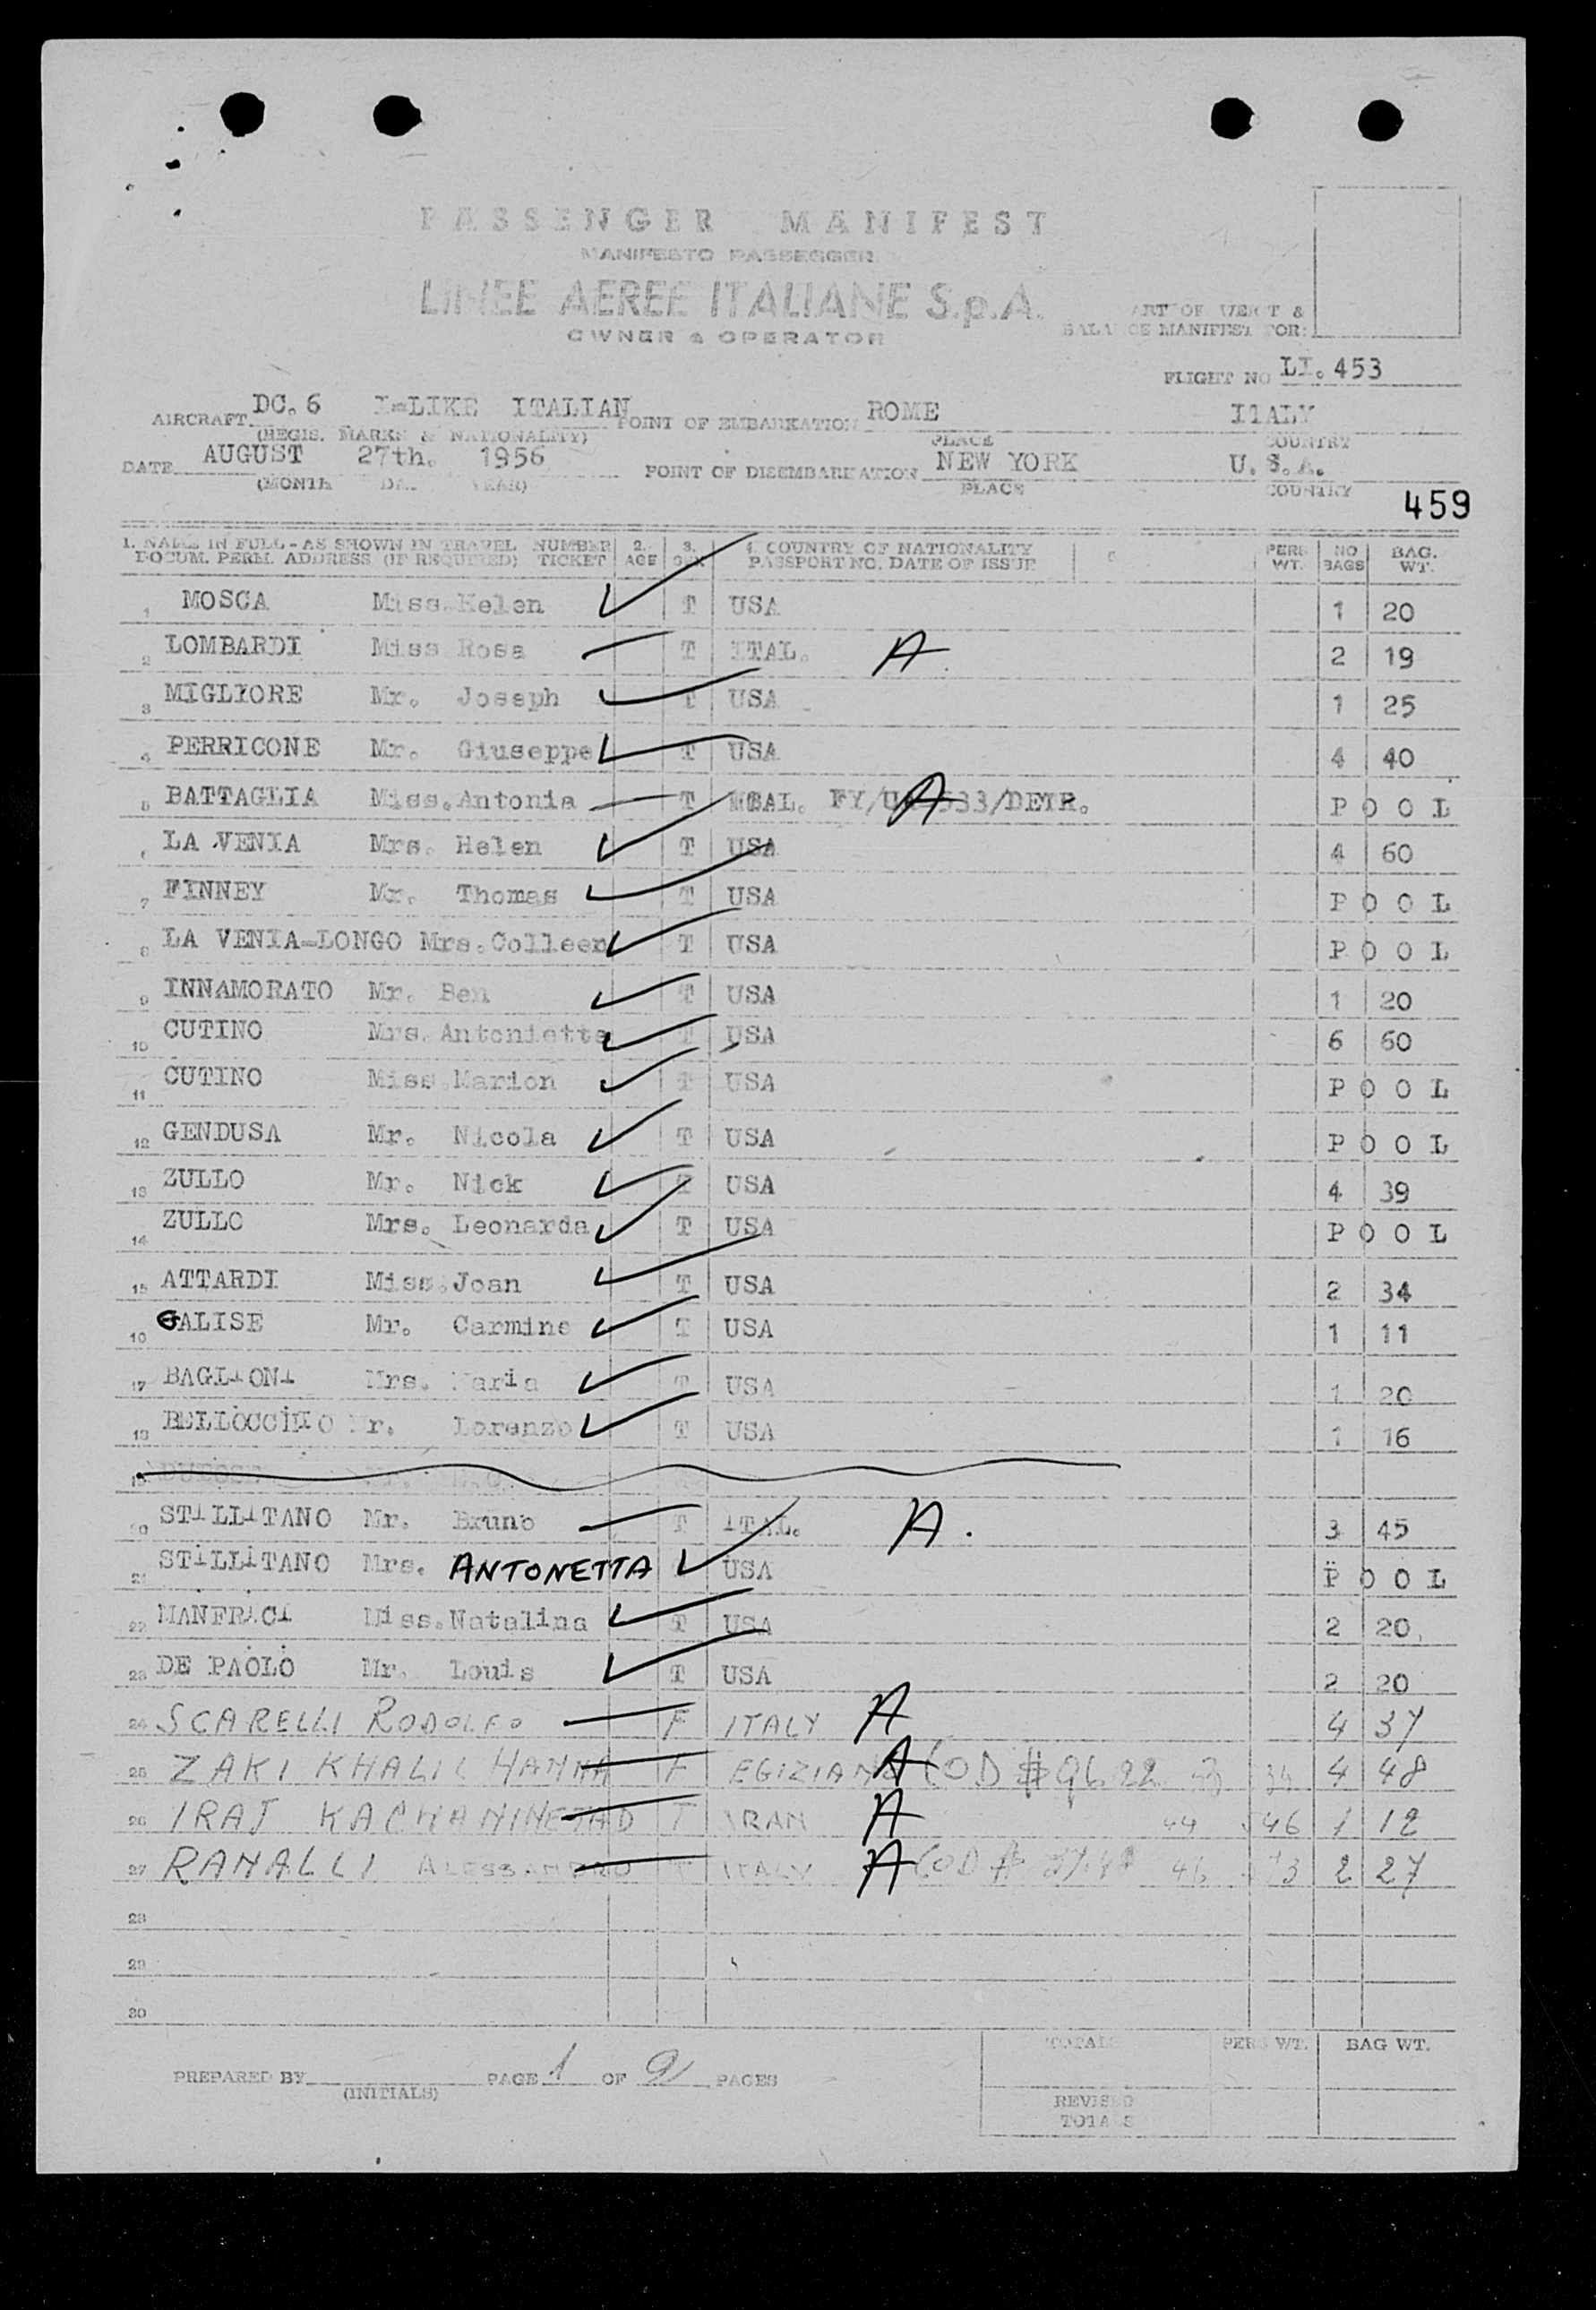 PASSENGER MANIFEST
MANIFESTO PASSEGGERI
LINEE AEREE ITALIANE S.p.A.
OWNER & OPERATOR
BALANCE MANIFEST FOR:
FLIGHT NO LI. 453
AIRCRAFT DC. 6 I-LIKE ITALIAN POINT OF EMBARKATION ROME ITALY
(REGIS. MARKS & NATIONALITY) PLACE COUNTRY
DATE AUGUST 27th. 1956 POINT OF DISEMBARKATION NEW YORK U.S.A.
(MONTH DAY YEAR) PLACE COUNTRY
459
1. NAME IN FULL - AS SHOWN IN TRAVEL NUMBER 2. 3. 4. COUNTRY OF NATIONALITY PERS NO BAG.
DOCUM. PERM. ADDRESS (IF REQUIRED) TICKET AGE SEX PASSPORT NO. DATE OF ISSUE WT. BAGS WT.
1 MOSCA Miss. Helen T USA 1 20
2 LOMBARDI Miss Rosa T ITAL. A 2 19
3 MIGLIORE Mr. Joseph T USA 1 25
4 PERRICONE Mr. Giuseppe T USA 4 40
5 BATTAGLIA Miss. Antonia T ITAL. A /DETR. POOL
6 LA VENIA Mrs. Helen T USA 4 60
7 FINNEY Mr. Thomas T USA POOL
8 LA VENIA-LONGO Mrs. Colleen T USA POOL
9 INNAMORATO Mr. Ben T USA 1 20
10 CUTINO Mrs. Antonietta T USA 6 60
11 CUTINO Miss. Marion T USA POOL
12 GENDUSA Mr. Nicola T USA POOL
13 ZULLO Mr. Nick T USA 4 39
14 ZULLO Mrs. Leonarda T USA POOL
15 ATTARDI Miss. Joan T USA 2 34
16 GALISE Mr. Carmine T USA 1 11
17 BAGLIONI Mrs. Maria T USA 1 20
18 BELLOCCHIO Mr. Lorenzo T USA 1 16
19
20 STILLITANO Mr. Bruno T ITAL. A. 3 45
21 STILLITANO Mrs. ANTONETTA USA POOL
22 MANFRICI Miss. Natalina T USA 2 20
23 DE PAOLO Mr. Louis T USA 2 20
24 SCARELLI RODOLFO F ITALY A 4 37
25 ZAKI KHALIL HANNA F EGIZIANA A COD $ 96.22 4 48
26 IRAJ T IRAN A 44 46 1 12
27 RAMALLI ALESSANDRO T ITALY A COD $ 46 2 27
28
29
30
TOTALS PERS WT. BAG WT.
PREPARED BY PAGE 1 OF 2 PAGES
(INITIALS)
REVISED
TOTALS